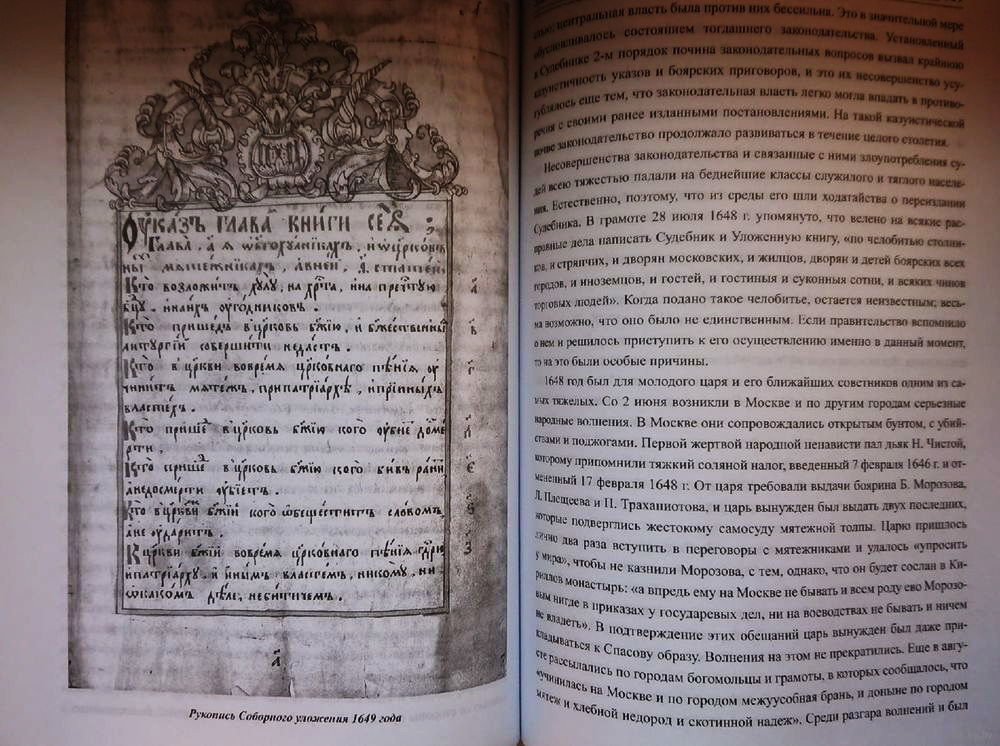 Ѹказъ глава книги сеѧ
Глава, а
Кто возложитъ хулу, на
бцу. инаихъ угодниковъ.
Кто пришедъ вцрковь бжию, и бжественныя
литургии совершити недастъ.
Кто вцркви вовремя црковнаго пѣния
чинитъ мятежъ, припатриархѣ, иприиныхъ
властехъ.
Кто вцрковь бжию кого убиетъ досме
рти.
Кто вцрковь бжию кого бивъ ранитъ
анедосмерти убиетъ.
Кто вцркви бжии кого обещеститъ словомъ,
ане ударитъ.
Вцркви бжии вовремя црковнаго пѣния гдрю
ипатриарху. и инымъ властемъ, никому, ни
окакомъ дѣле, небитичемъ.
Рукопись Соборного уложения 1649 года
центральная власть была против них бессильна. Это в значительной мере
обусловливалось состоянием тогдашнего законодательства. Установленный
в Судебнике 2-м порядок почина законодательных вопросов вызвал крайнюю
казуистичность указов и боярских приговоров, и это их несовершенство усу-
гублялось еще тем, что законодательная власть легко могла впадать в противо-
речия с своими ранее изданными постановлениями. На такой казуистической
почве законодательство продолжало развиваться в течение целого столетия.
Несовершенства законодательства и связанные с ними злоупотребления су-
дей всею тяжестью падали на беднейшие классы служилого и тяглого населе-
ния. Естественно, поэтому, что из среды его шли ходатайства о переиздании
Судебника. В грамоте 28 июля 1648 г. упомянуто, что велено на всякие рас-
правные дела написать Судебник и Уложенную книгу, «по челобитью столни-
ков, и стряпчих, и дворян московских, и жилцов, дворян и детей боярских всех
городов, и иноземцов, и гостей, и гостиныя и суконныя сотни, и всяких чинов
торговых людей». Когда подано такое челобитье, остается неизвестным; весь-
ма возможно, что оно было не единственным. Если правительство вспомнило
о нем и решилось приступить к его осуществлению именно в данный момент,
то на это были особые причины.
1648 год был для молодого царя и его ближайших советников одним из са-
мых тяжелых. Со 2 июня возникли в Москве и по другим городам серьезные
народные волнения. В Москве они сопровождались открытым бунтом, с убий-
ствами и поджогами. Первой жертвой народной ненависти пал дьяк Н. Чистой,
которому припомнили тяжкий соляной налог, введенный 7 февраля 1646 г. и от-
мененный 17 февраля 1648 г. От царя требовали выдачи боярина Б. Морозова,
Л. Плещеева и П. Траханиотова, и царь вынужден был выдать двух последних,
которые подверглись жестокому самосуду мятежной толпы. Царю пришлось
лично два раза вступить в переговоры с мятежниками и удалось «упросить
у мира», чтобы не казнили Морозова, с тем, однако, что он будет сослан в Ки-
риллов монастырь: «а впредь ему на Москве не бывать и всем роду ево Морозо-
вым нигде в приказах у государевых дел, ни на воеводствах не бывать и ничем
не владеть». В подтверждение этих обещаний царь вынужден был даже при-
кладываться к Спасову образу. Волнения на этом не прекратились. Еще в авгу-
сте рассылались по городам богомольцы и грамоты, в которых сообщалось, что
«учинилась на Москве и по городом межуусобная брань, и доныне по городом
мятеж и хлебной недород и скотинной надеж». Среди разгара волнений и был